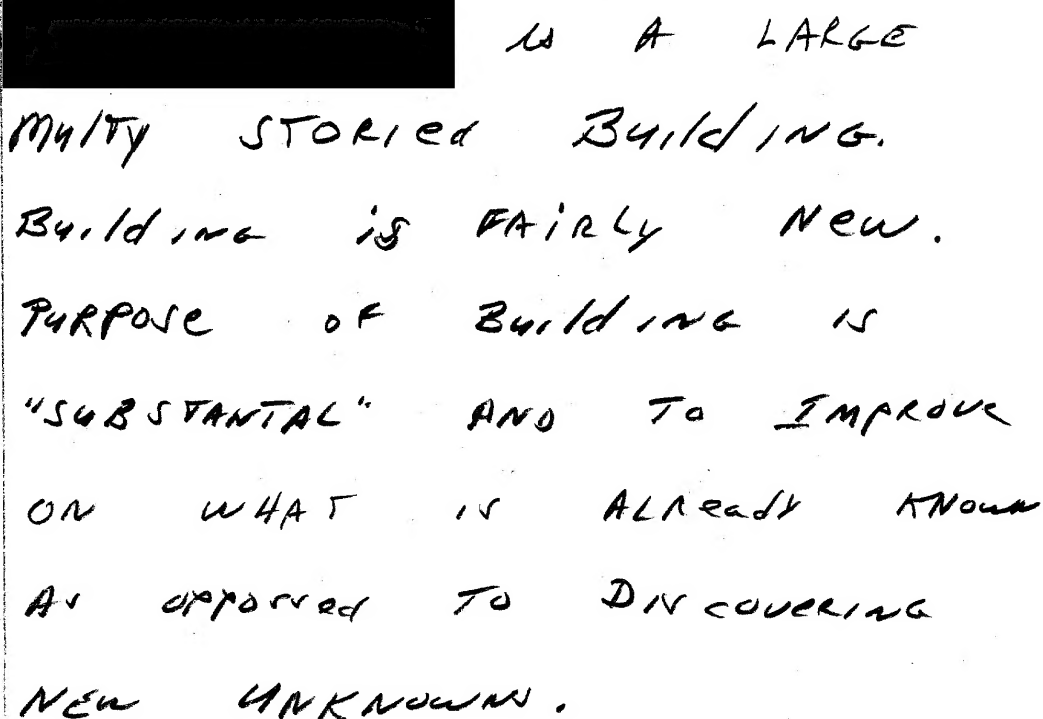 is A LARGE
Multy STORied BuildING.
BuildING is FAiRLy New.
PURPOSe oF BuildING is
"SUBSTANTAL" AND To IMPROVe
ON WHAT is ALReady KNowN
As opposed To DiscoveRING
New UNKNowNs.